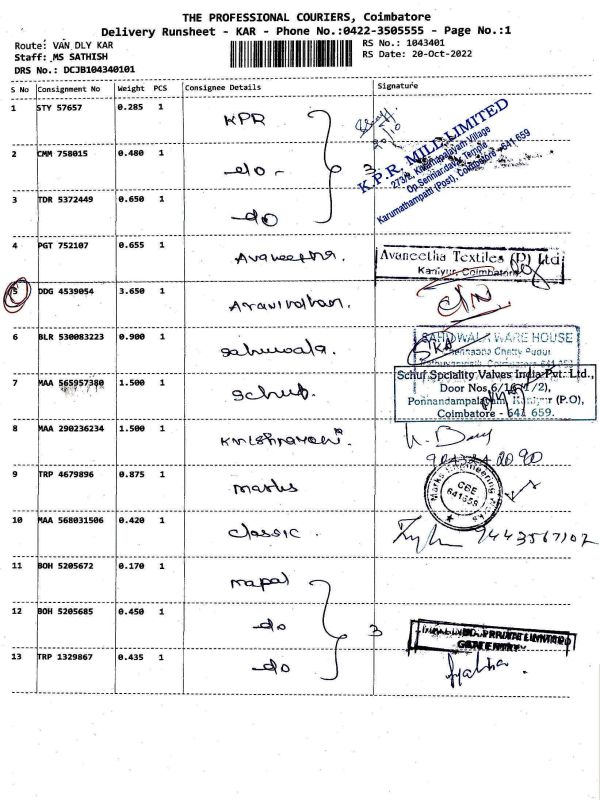 THE PROFESSIONAL COURIERS, Coimbatore
Delivery Runsheet - KAR - Phone No.:0422-3505555 - Page No.:1
Route: VAN DLY KAR
RS No.: 1043401
Staff: MS SATHISH
RS Date: 20-Oct-2022
DRS No.: DCJB104340101
S No Consignment No Weight PCS Consignee Details Signature
1 STY 57657 0.285 1 KPR
K.P.R. MILL LIMITED
273/2, Kittampalayam Village
Op.Senniandavar Temple
Karumathampatti (Post), Coimbatore - 641 659
2 CMM 758015 0.480 1 -do- 3
3 TDR 5372449 0.650 1 -do
4 PGT 752107 0.655 1 Avaneetha.
Avaneetha Textiles (P) Ltd
Kaniyur, Coimbatore
5 DDG 4539054 3.650 1
6 BLR 530083223 0.900 1 Sahuwala.
SAHUWALA WARE HOUSE
7 MAA 565957380 1.500 1 Schuf.
Schuf Spciality Valves India Pvt. Ltd.,
Door Nos.6/16(1/2),
Ponnandampalayam, Kaniyur (P.O),
Coimbatore - 641 659.
8 MAA 290236234 1.500 1
9 TRP 4679896 0.875 1 marks
Marks Engineering Works
CBE
641658
10 MAA 568031506 0.420 1 classic. 9443567102
11 BOH 5205672 0.170 1 mapal
12 BOH 5205685 0.450 1 -do 3
PRIVATE LIMITED
GATE ENTRY
13 TRP 1329867 0.435 1 -do